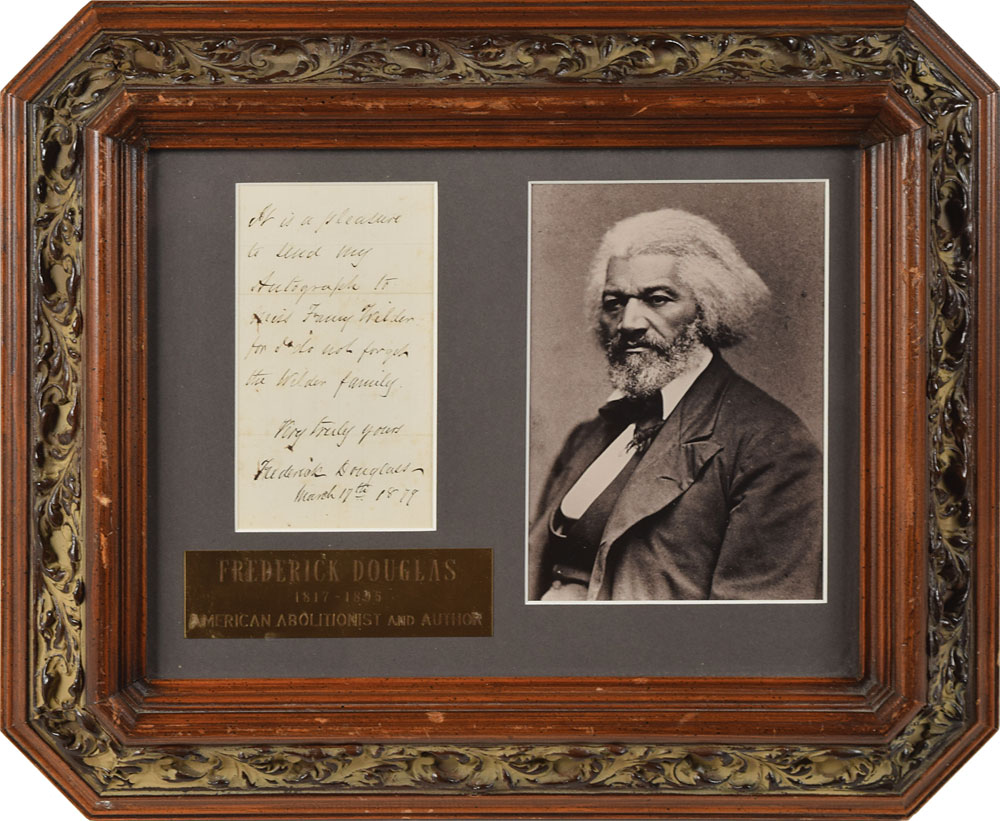 It is a pleasure
to send my
Autograph to
Miss Fanny Wilder
for I do not forget
the Wilder family.
Very truly yours
Frederick Douglass
March 17th 1879
FREDERICK DOUGLAS
1817-1895
AMERICAN ABOLITIONIST AND AUTHOR